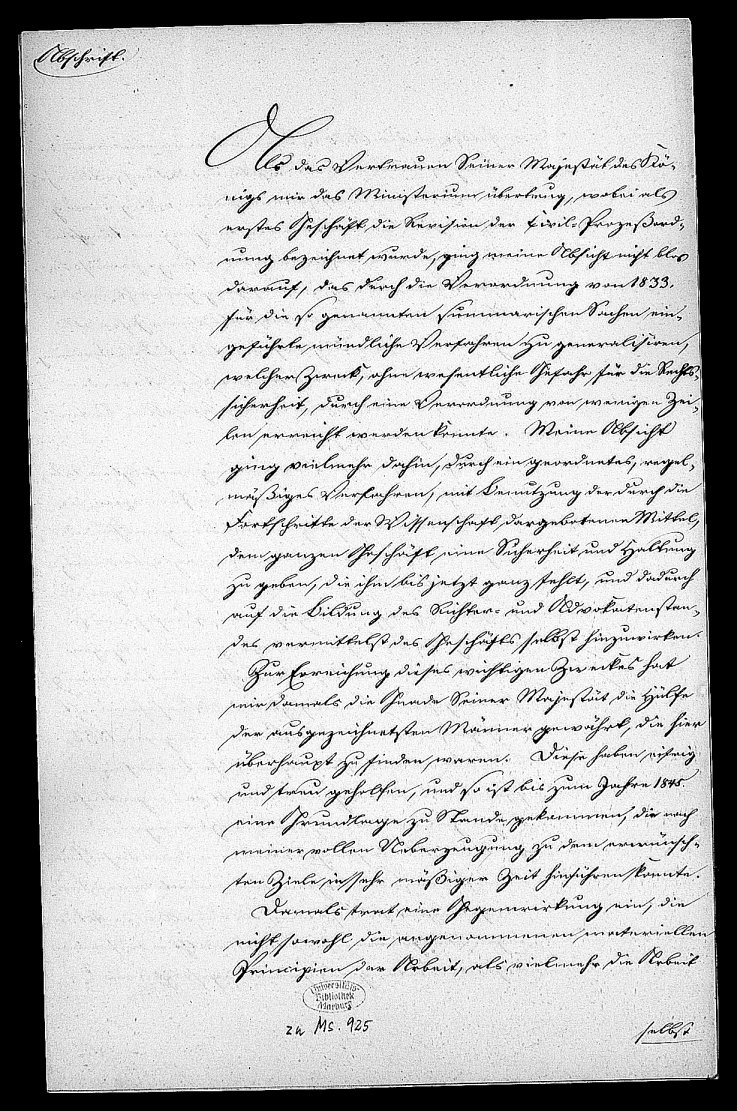 Abschrift.
Als das Vertrauen Seiner Majestät des Kö-
nigs mir das Ministerium übertrug, wobei als
erstes Geschäft die Revision der Civil-Prozeßord-
nung bezeichnet wurde, ging meine Absicht nicht blos
darauf, das durch die Verordnung von 1833.
für die so genannten summarischen Sachen ein-
geführte mündliche Verfahren zu generalisiren,
welcher Zweck, ohne wesentliche Gefahr für die Rechts-
sicherheit, durch eine Verordnung von wenigen Zei-
len erreicht werden konnte. Meine Absicht
ging vielmehr dahin, durch ein geordnetes, regel-
mäßiges Verfahren, mit Benutzung der durch die
Fortschritte der Wissenschaft dargebotenen Mittel,
dem ganzen Geschäft eine Sicherheit und Haltung
zu geben, die ihm bis jetzt ganz fehlt, und dadurch
auf die Bildung des Richter- und Advokatenstan-
des vermittelst des Geschäfts selbst hinzuwirken.
Zur Erreichung dieses wichtigen Zweckes hat
mir damals die Gnade Seiner Majestät die Hülfe
der ausgezeichnetsten Männer gewährt, die hier
überhaupt zu finden waren. Diese haben eifrig
und treu geholfen, und so ist bis zum Jahre 1845.
eine Grundlage zu Stande gekommen, die nach
meiner vollen Ueberzeugung zu dem erwünsch-
ten Ziele in sehr mäßiger Zeit hinführen konnte.
Damals trat eine Gegenwirkung ein, die
nicht sowohl die angenommenen materiellen
Principien der Arbeit, als vielmehr die Arbeit
Universitäts-
Bibliothek
Marburg
zu Ms. 925
selbst